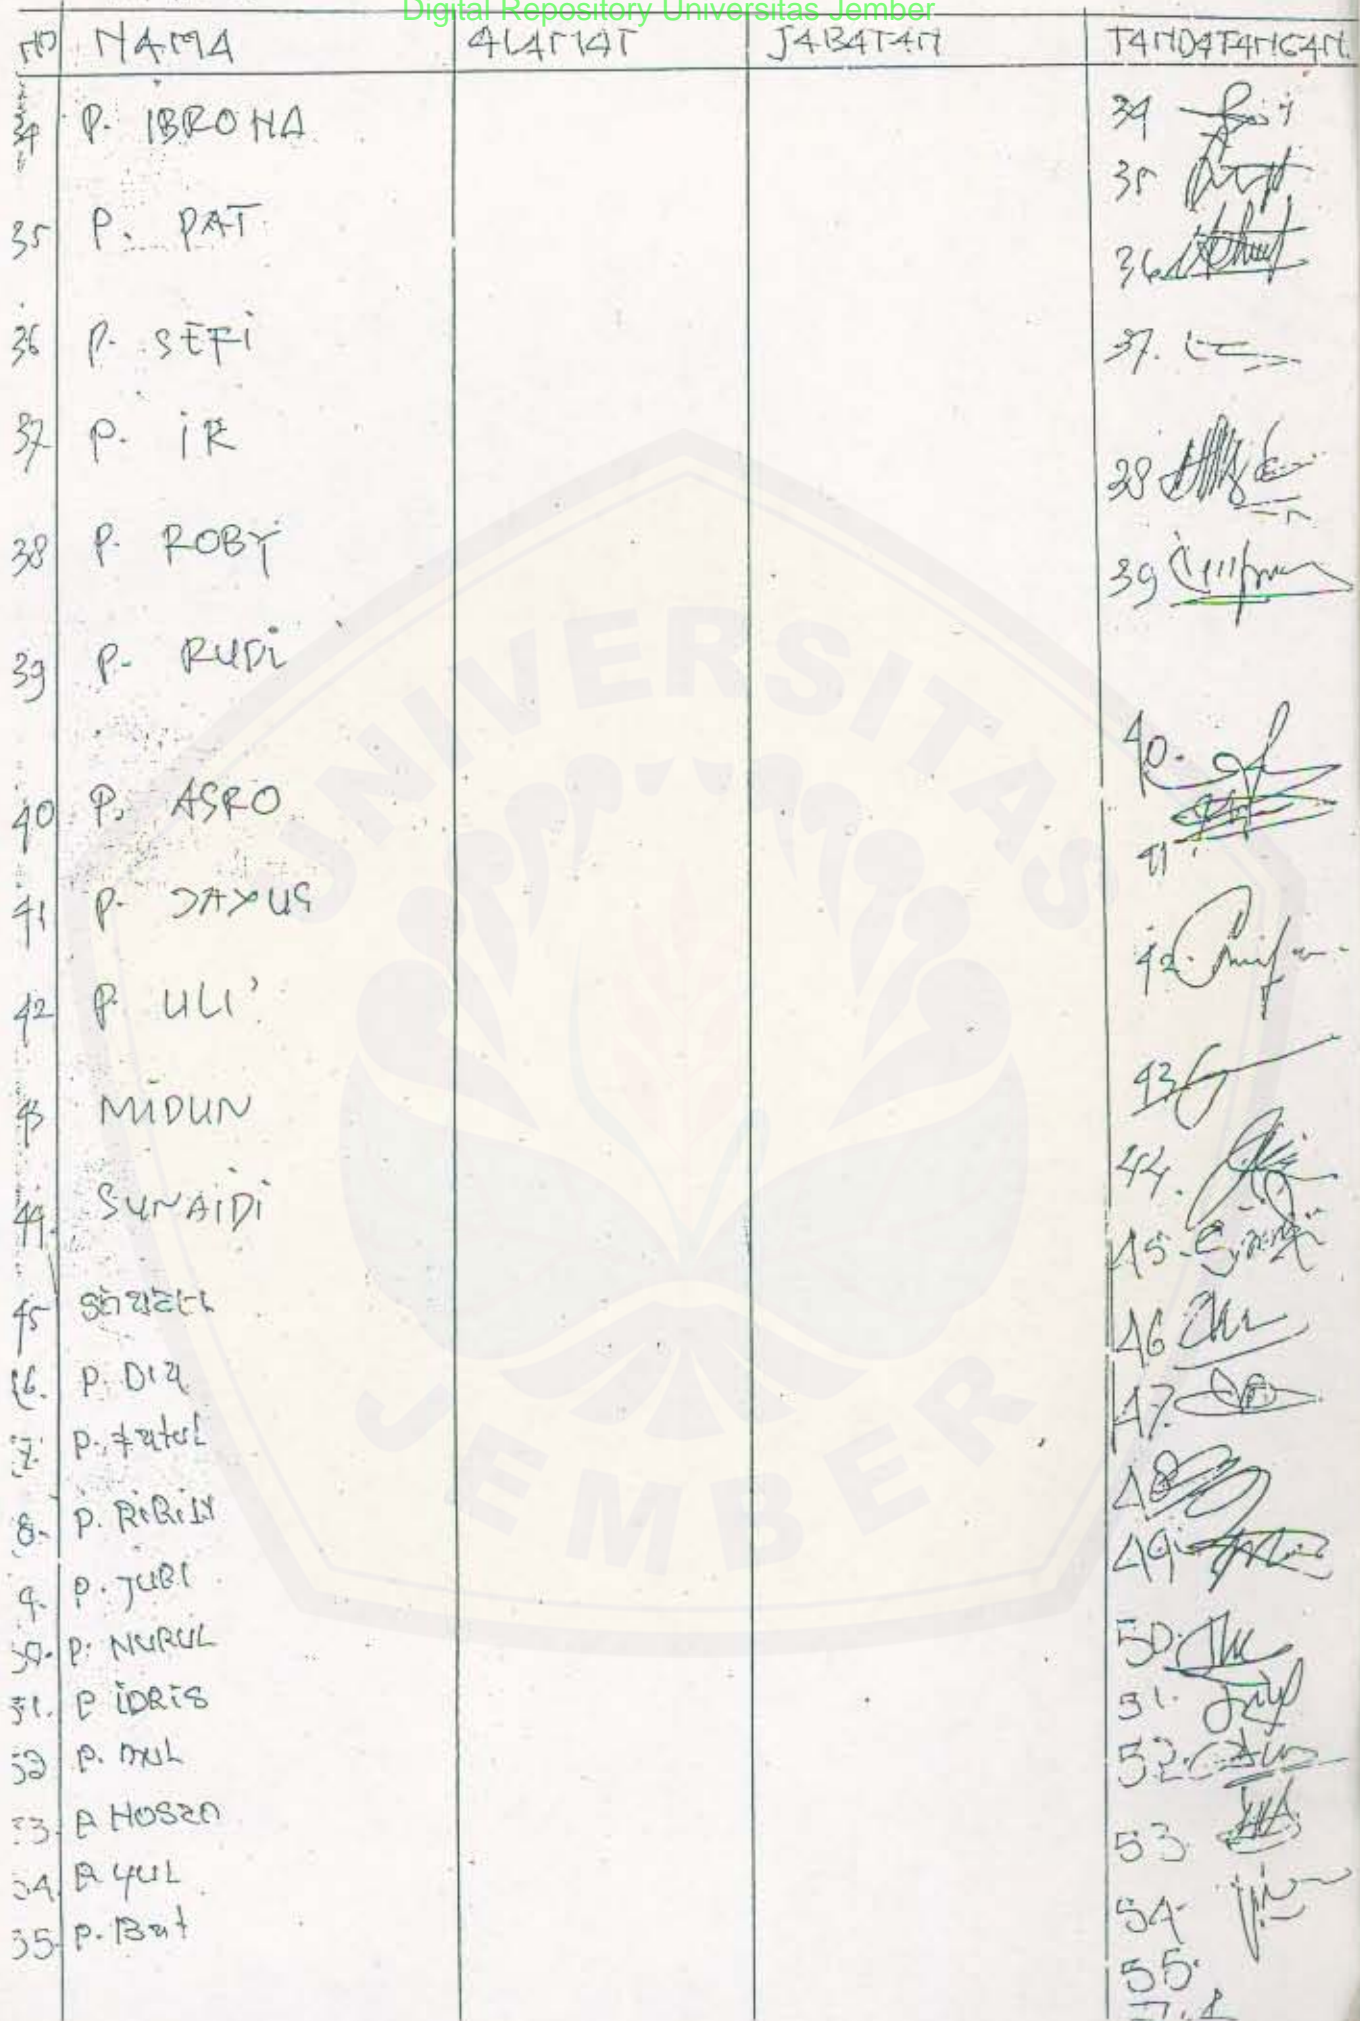 Digital Repository Universitas Jember
NO NAMA ALAMAT JABATAN TANDATANGAN.
34 P. IBROHA 34
35 P. PAT 35
36 P. SEFI 36
37 P. IR 37.
38 P. ROBY 38
39 P. RUDI 39
40 P. ASRO 40.
41 P. JAYUS 41
42 P. ULI' 42.
43 MIDUN 43
44. SUNAIDI 44.
45 45.
6. P. DIA 46
7. P. Fatul 47.
8. P. RIRIN 48
9. P. JUBI 49
50. P. NURUL 50.
51. P IDRIS 51.
52 P. MUL 52.
53. P HOSEN 53.
54. P YUL 54
55. P. Bat 55.
UNIVERSITAS
JEMBER